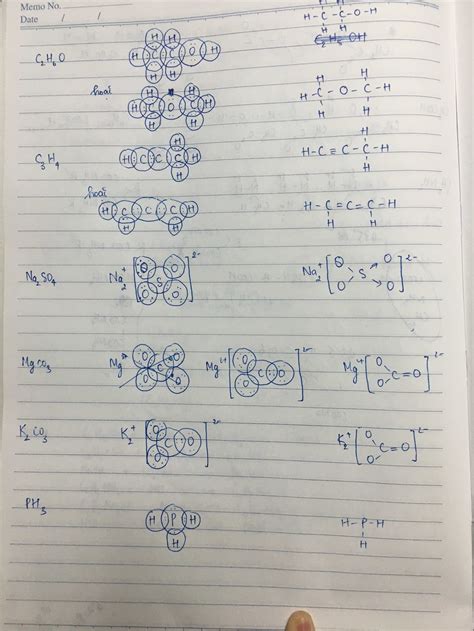 Memo No.
Date / /
H H
H-C-C-O-H
H H
C₂H₆O
H H
H C C O H
H H
hoặc
H H
H C O C H
H H
H H
H-C-O-C-H
H H
C₃H₄
H C C C H
H
H
H
H-C≡C-C-H
H
hoặc
H C C C H
H H
H-C=C=C-H
H H
Na₂SO₄
Na₂⁺ [O O S O O]²⁻
Na₂⁺ [O O S O O]²⁻
MgCO₃
Mg O O C O O
Mg [O C O O]²⁻
Mg [O C=O O]²⁻
K₂CO₃
K₂⁺ [O C O O]²⁻
K₂⁺ [O C=O O]²⁻
PH₃
H P H
H
H-P-H
H